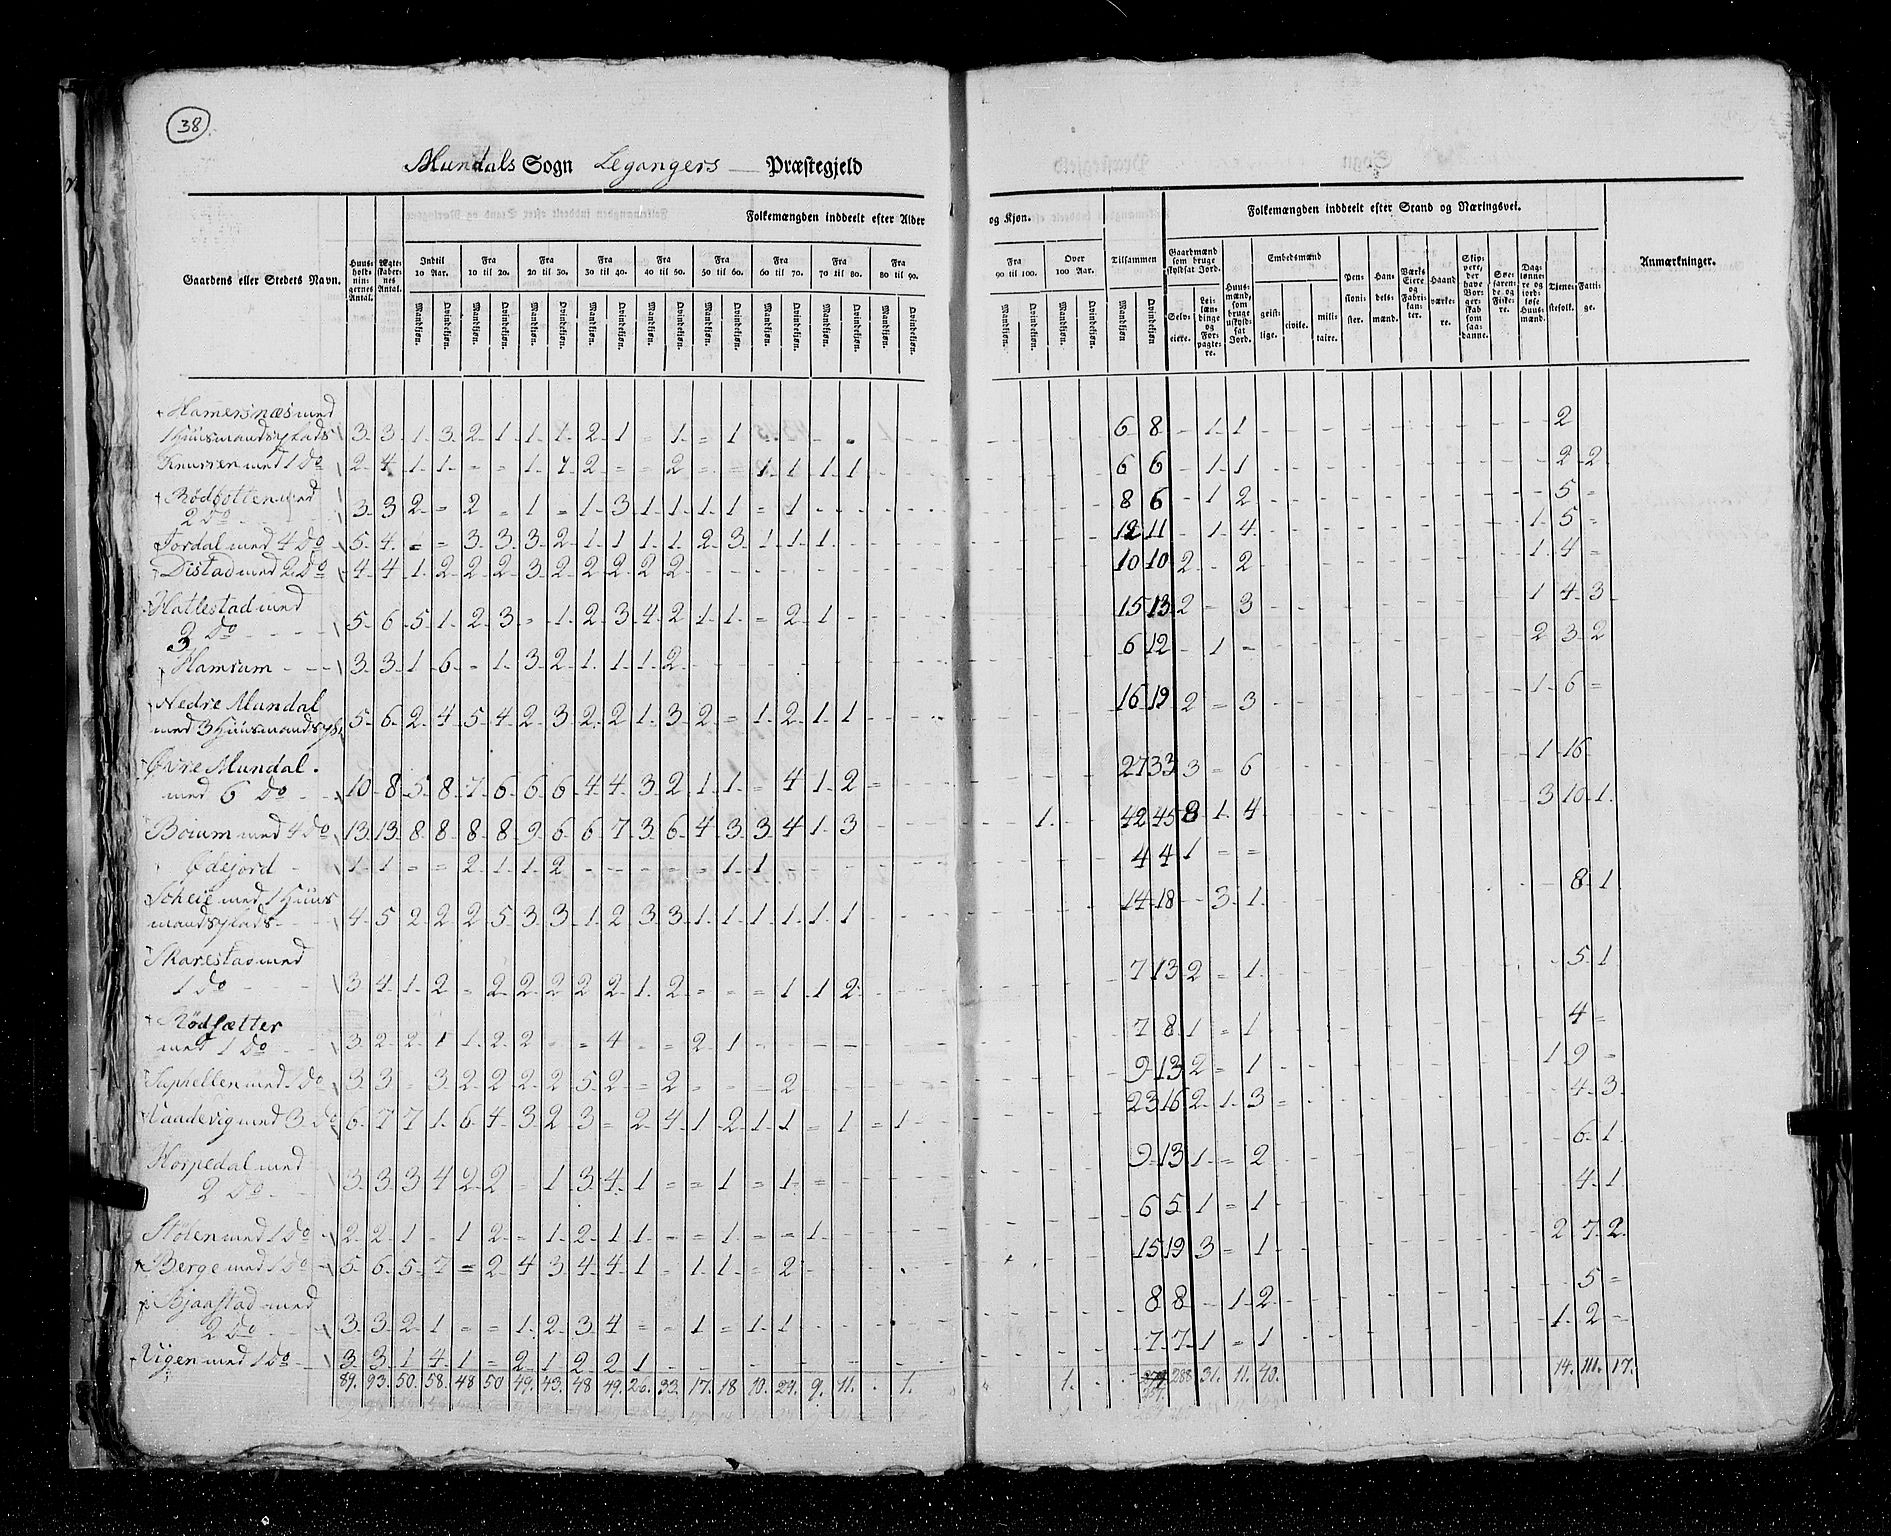 38
Mundals Sogn Legangers — Præstegjeld
Gaardens eller Stedets Navn.
Huus-
hold-
nin-
gernes
Antal.
Ægte-
skaber-
nes
Antal.
Folkemængden inddeelt efter Alder
og Kjøn.
Indtil 10 Aar.
Fra 10 til 20.
Fra 20 til 30.
Fra 30 til 40.
Fra 40 til 50.
Fra 50 til 60.
Fra 60 til 70.
Fra 70 til 80.
Fra 80 til 90.
Fra 90 til 100.
Over 100 Aar.
Tilsammen
Mandkjøn. Qvindekjøn.
Folkemængden inddeelt efter Stand og Næringsvei.
Gaardmænd som bruge skyldsat Jord.
Selv-
eiere.
Lei-
læn-
dinge
og
For-
pagte-
re.
Huus-
mænd,
som
bruge
uskyld-
sat
Jord.
Embedsmænd
geist-
lige.
civile.
mili-
taire.
Pen-
sioni-
ster.
Han-
dels-
mænd.
Værks
Eiere
og
Fabri-
kan-
ter.
Haand
værke-
re.
Skip-
pere,
der
have
Bor-
ger-
skab
som
saa-
danne.
Søe-
farende
og
Fiske-
re.
Dag-
lønne-
re og
jord-
løse
Huus-
mænd.
Tiene-
stefolk.
Fatti-
ge.
Anmærkninger.
Hamersnæs med
1 Huusmandsplads 3 3 1 3 2 1 1 1 2 1 = 1 = 1 6 8 - 1 1 2
Knurren med 1 Do 2 4 1 1 = = 1 1 2 = = 2 = = 1 1 1 1 6 6 - 1 1 2 2
Rødbotten med
2 Do 3 3 2 = 2 = 1 = 1 3 1 1 1 1 = 1 8 6 - 1 2 5 =
Jordal med 4 Do 5 4 = = 3 3 3 2 1 1 1 1 2 3 1 1 1 12 11 - 1 4 1 5 =
Distad med 2 Do 4 4 1 2 2 2 3 2 2 2 2 2 10 10 2 - 2 1 4 =
Hatlestad med
3 Do 5 6 5 1 2 3 = 1 2 3 4 2 1 1 = 2 1 15 13 2 = 3 1 4 3
Hamrum 3 3 1 6 = 1 3 2 1 1 1 2 6 12 - 1 = 2 3 2
Nedre Mundal
med 3 Huusmandspl. 5 6 2 4 5 4 2 3 2 2 1 3 2 = 1 2 1 1 16 19 2 = 3 1 6 =
Øvre Mundal
med 6 Do 10 8 5 8 7 6 6 6 4 4 3 2 1 1 = 4 1 2 = 27 33 3 = 6 1 16
Boium med 4 Do 13 13 8 8 8 8 9 6 6 7 3 6 4 3 3 4 1 3 1 42 45 8 1 4 3 10 1
Ødejord 1 1 = = 2 1 1 2 1 1 4 4 1 = =
Scheie med 1 Huus
mandsplads 4 5 2 2 2 5 3 3 1 2 3 3 1 1 1 1 1 1 14 18 - 3 1 8 1
Skarestad med
1 Do 3 4 1 2 = 2 2 2 2 2 1 2 = = = 1 1 2 7 13 2 = 1 5 1
Rødsætter
med 1 Do 3 2 2 1 1 2 2 = = 4 2 1 7 8 1 = 1 4 =
Suphellen med 1 Do 3 3 = 3 2 2 2 2 5 2 = 2 = = = 2 9 13 2 = 1 1 9 =
med 3 Do 6 7 7 1 6 4 3 2 3 = 2 4 1 2 1 1 = 1 = 1 23 16 2 1 3 = 4 3
Horpedal med
2 Do 3 3 3 4 2 2 = 1 3 4 1 = = 1 = 1 = 9 13 1 = 2 6 1
Stølen med 1 Do 2 2 1 = 1 2 = 1 2 1 1 = = 1 = = 1 6 5 1 = 1 4 1
Berge med 1 Do 5 6 5 7 = 2 4 3 4 4 1 = 1 1 = 2 15 19 3 = 1 2 7 2
Bjaastad med
2 Do 3 3 2 1 = = 1 2 3 4 = = 1 = 1 1 8 8 - 1 2 5 =
Rigen med 1 Do 3 3 1 4 1 = 2 1 2 2 1 7 7 1 = 1 1 2
89. 93. 50. 58. 48 50 49. 43. 48 49. 26. 33. 17. 18 10. 24. 9. 11. . 1. 1. 288 31. 11. 40. 14. 111. 17.